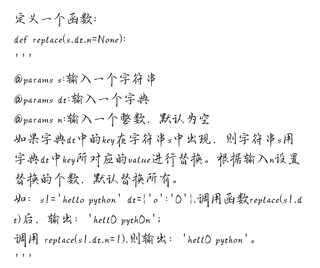 定义一个函数:
def replace(s.dt.n=None):
'''
@params s:输入一个字符串
@params dt:输入一个字典
@params n:输入一个整数，默认为空
如果字典dt中的key在字符串s中出现，则字符串s用
字典dt中key所对应的value进行替换。根据输入n设置
替换的个数，默认替换所有。
如: s1='hello python' dt={'o':'O'}.调用函数replace(s1.d
t)后，输出: 'hellO pythOn';
调用 replace(s1.dt.n=1).则输出: 'hellO python'。
'''